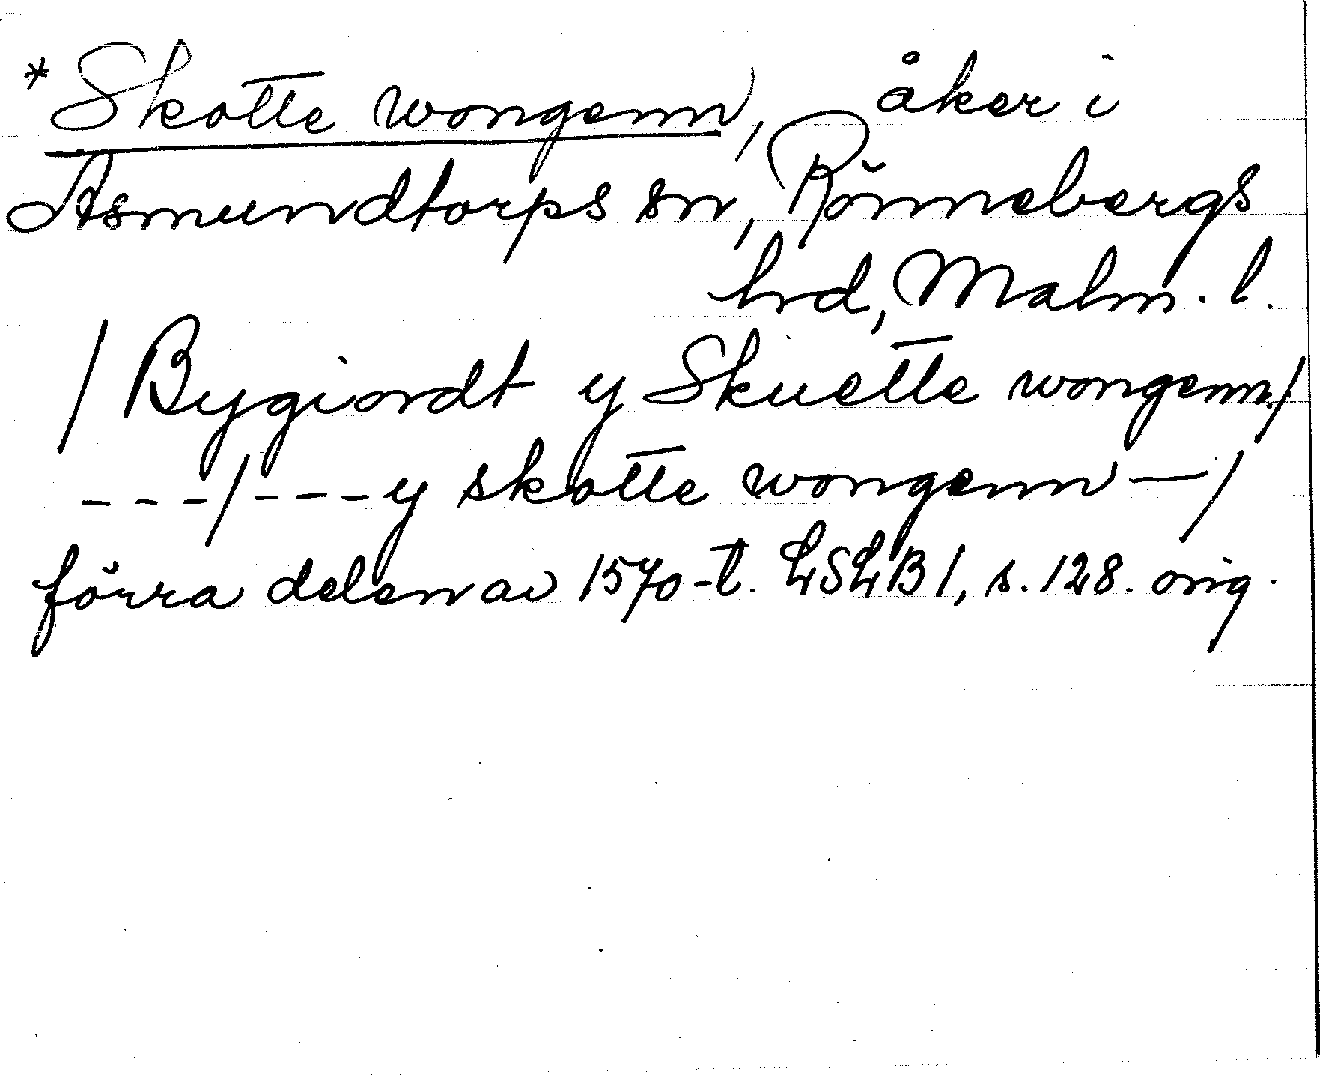 *Skotte wongenn, åker i
Asmundtorps sn, Rönnebergs
hrd, Malm. l.
/ Bygiordt y Skuette wongenn /
---/---y skotte wongenn —/
förra delen av 1570-t. LSLB 1, s. 128. orig.